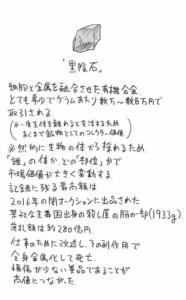 「黒陰石」
細胞と金属を融合させた有機合金
とても希少でグラムあたり数万〜数百万で
取引される
(※一度生体を離れると
あくまで鉱物としてのコレクター価値)
※然的に生物の体から採れるため
「誰」の体か、どの「部位」かで
市場価値が大きく変動する
記録に残る最高額は
2016年の闇オークションに出品された
某国出身の殺し屋の脳の一部(1933g)
落札額は約280億円
仕事のために改造し、その副作用で
全身金属化して死亡。
損傷が少ない美品であることが
高値につながった